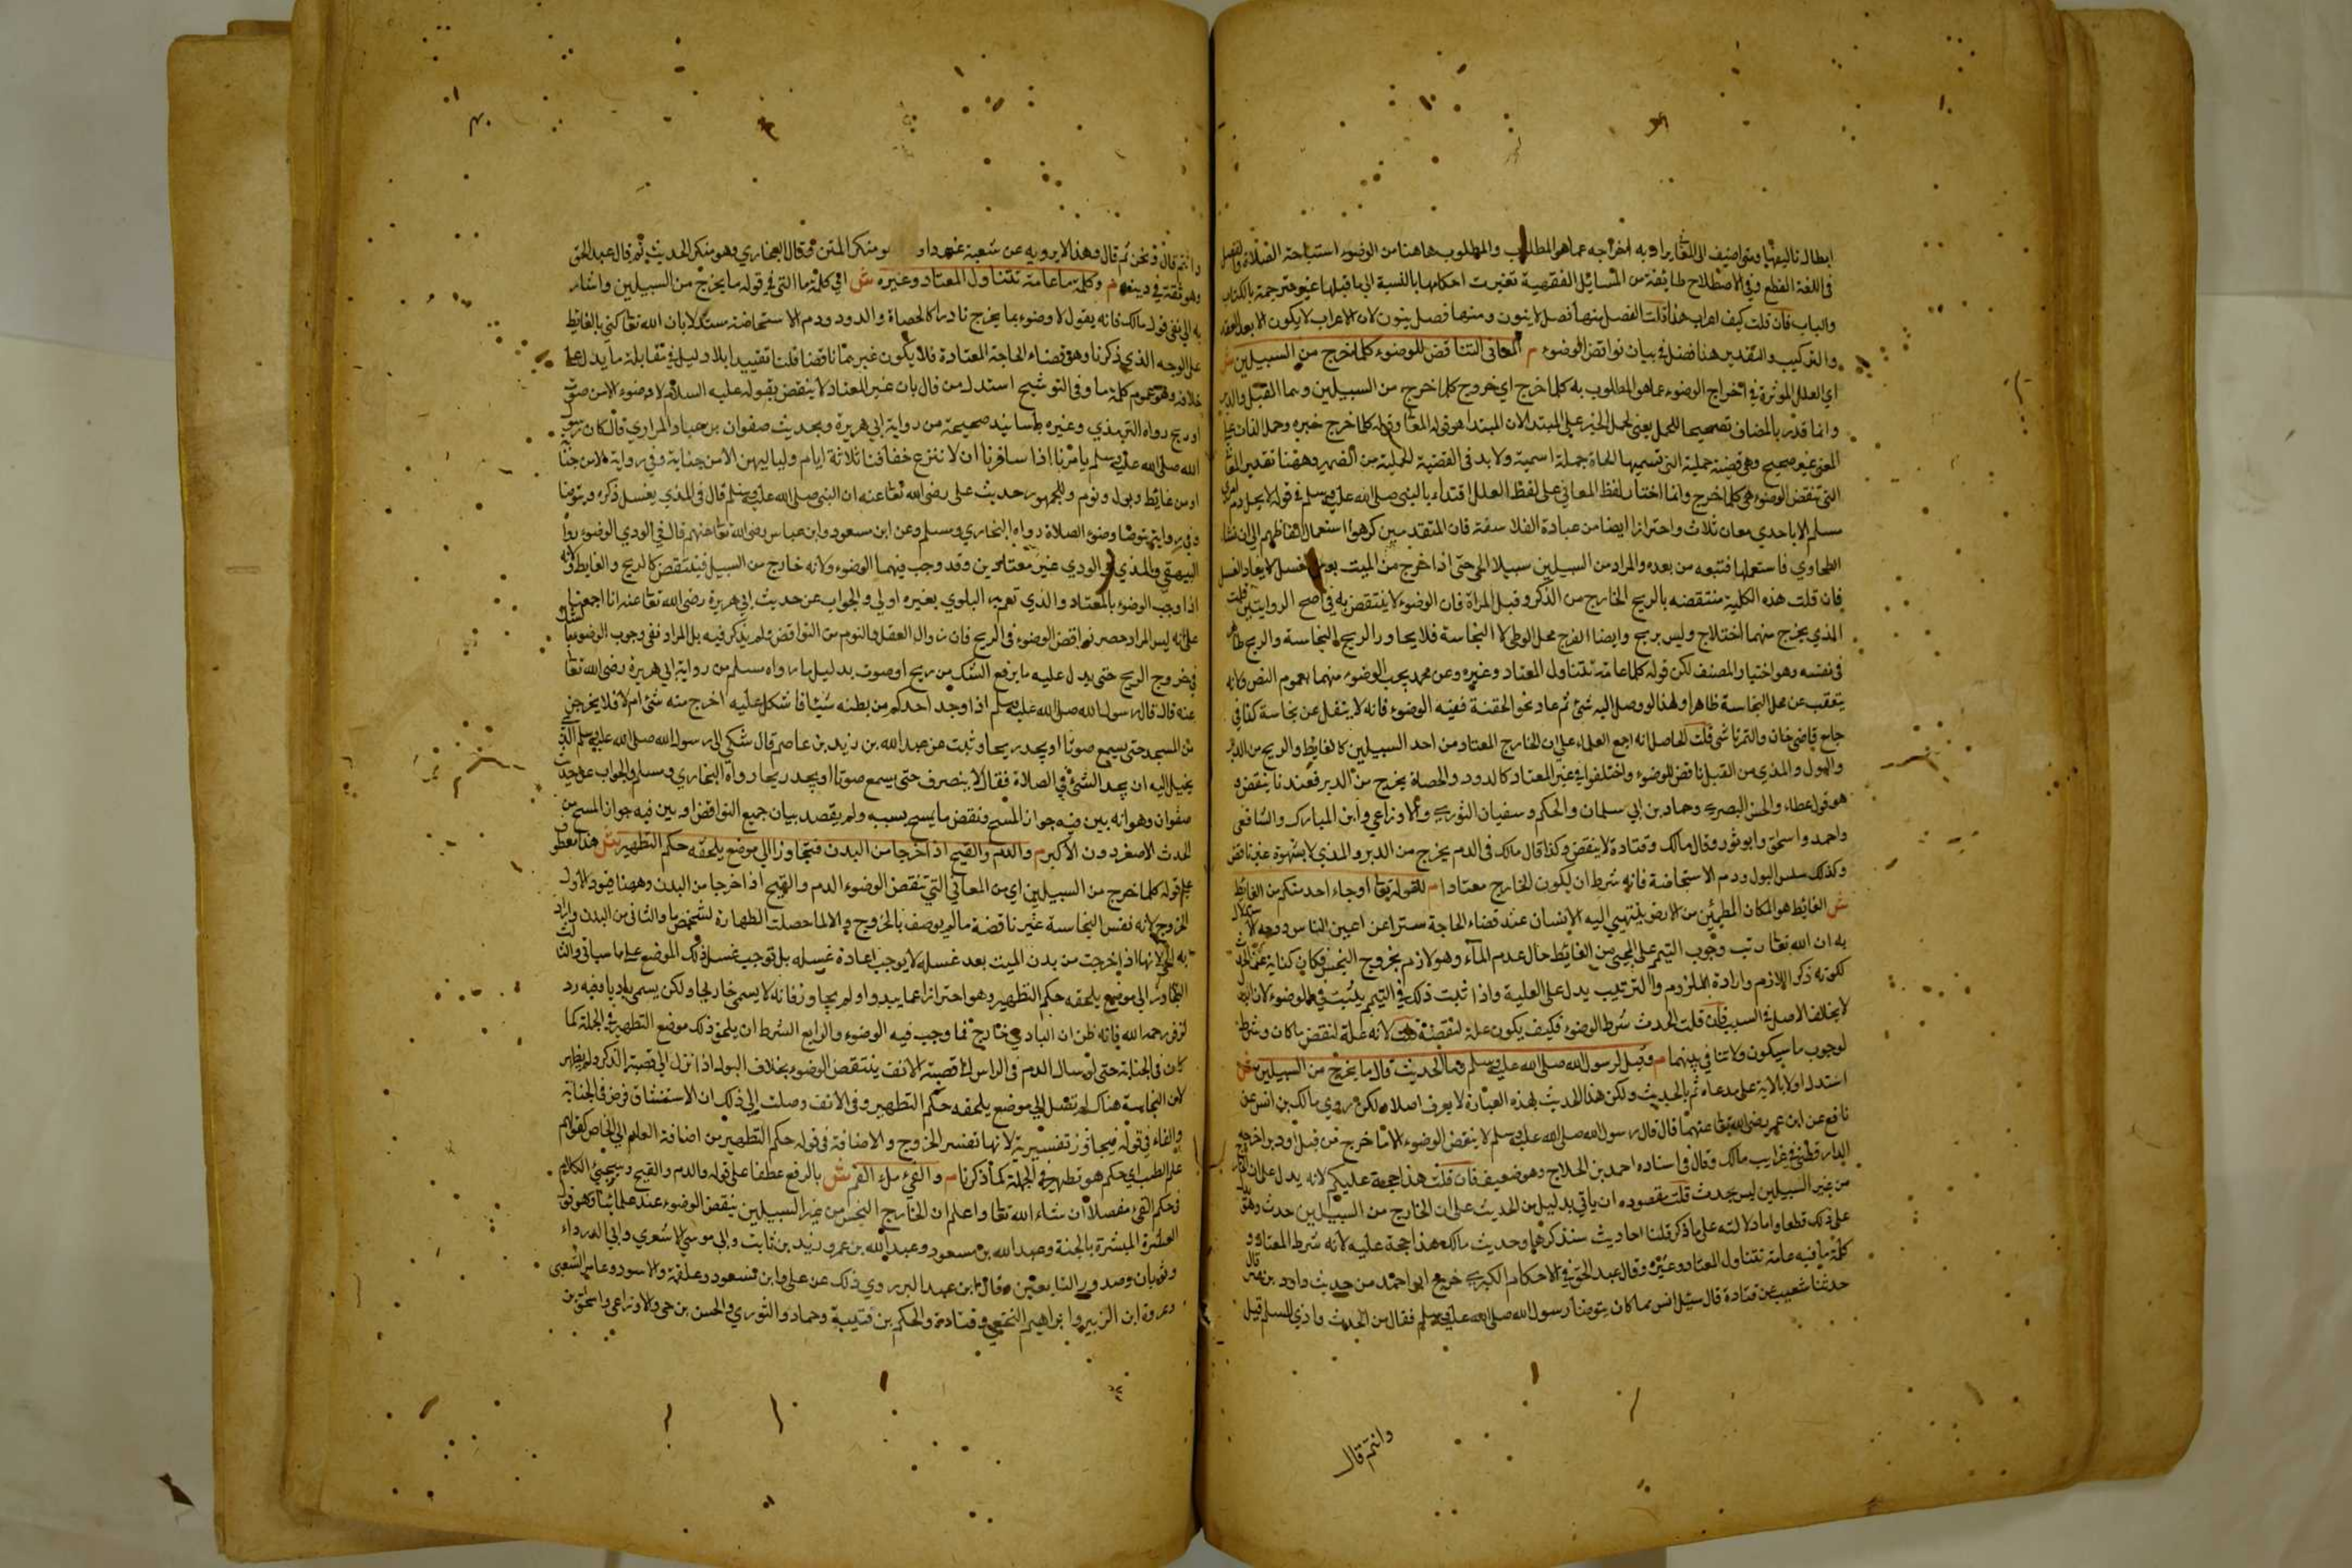 ابطال تاليفها ومتى اضيف الى المعاني يراد به اخراجه عما هو المطلوب والمطلوب هاهنا من الوضوء استباحة الصلاة والفصل
في اللغة القطع وفي الاصطلاح طائفة من المسائل الفقهية تغيرت احكامها بالنسبة الى ما قبلها غير مترجمة بالكتاب
والباب فان قلت كيف اعراب هذا قلت الفصل ينون ومنها فصل ينون لان الاعراب لا يكون الا بعد العقد
والتركيب والتقدير هنا فصل في بيان نواقض الوضوء م المعاني الناقضة للوضوء كلما خرج من السبيلين ش
اي العلل المؤثرة في اخراج الوضوء عما هو المطلوب به كلما خرج اي خروج كلما خرج من السبيلين وهما القبل والدبر
وانما قدر بالمضاف تصحيحا للحمل يعني لحمل الخبر على المبتدا لان المبتدا هو قوله المعاني وقوله كلما خرج خبره وحمل الذات على
المعنى غير صحيح وهي قضية حملية التي تسميها النحاة جملة اسمية ولا بد في القضية الحملية من الضمير وههنا تقدير المعاني
التي تنقض الوضوء هي كلما خرج وانما اختار لفظ المعاني على لفظ العلل اقتداء بالنبي صلى الله عليه وسلم في قوله لا يحل دم امرئ
مسلم الا باحدي معان ثلاث واحترازا ايضا من عبادة الفلاسفة فان المتقدمين كرهوا استعمال الفاظهم الى ان نشا
الطحاوي فاستعملها فتبعه من بعده والمراد من السبيلين سبيلا الحي حتى اذا خرج من الميت بعد غسله لا يعاد الغسل
فان قلت هذه الكلية منتقضة بالريح الخارج من الذكر وقبل المرأة فان الوضوء لا ينتقض به في اصح الروايتين قلت
المذي يخرج منهما اختلاج وليس بريح وايضا الفرج محل الوطئ لا النجاسة فلا يجاور الريح النجاسة والريح طاهر
في نفسه وهو اختيار المصنف لكن قوله كلما عامة تتناول المعتاد وغيره وعن محمد يجب الوضوء منهما لعموم النص ولانه
يتعقب عن محل النجاسة ظاهرا ولهذا لو وصل اليه شئ ثم عاد نحو الحقنة ففيه الوضوء فانه لا ينفك عن نجاسة كذا في
جامع قاضي خان والتمرتاشي قلت الحاصل انه اجمع العلماء على ان الخارج المعتاد من احد السبيلين كالغايط والريح من الدبر
والبول والمذي من القبل ناقض للوضوء واختلفوا في غير المعتاد كالدود والحصاة يخرج من الدبر فعندنا ينقض
هو قول عطاء والحسن البصري وحماد بن ابي سلمان والحكم وسفيان الثوري والاوزاعي وابن المبارك والشافعي
واحمد واسحق وابو ثور وقال مالك وقتادة لا ينقض وكذا قال مالك في الدم يخرج من الدبر والمذي لا بشهوة غير ناقض
وكذلك سلس البول ودم الاستحاضة فانه شرط ان يكون الخارج معتادا م لقوله تعالى او جاء احد منكم من الغائط
ش الغائط هو المكان المطمئن من الارض ينتهي اليه الانسان عند قضاء الحاجة سترا عن اعين الناس ووجه الاستدلال
به ان الله تعالى رتب وجوب التيمم على المجئ من الغايط حال عدم الماء وهو لازم بخروج النجس فكان كناية عن الحدث
لكونه ذكر اللازم وارادة الملزوم والترتيب يدل على العلية واذا ثبت ذلك في التيمم يثبت في الوضوء لان البدل
لا يخالف الاصل في السبب فان قلت الحدث شرط الوضوء فكيف يكون علة لنقضه قلت لانه علة لنقض ما كان وشرط
لوجوب ما سيكون ولا تنافي بينهما م وقيل لرسول الله صلى الله عليه وسلم وما الحدث قال ما يخرج من السبيلين ش
استدل اولا بالاية على مدعاه ثم بالحديث ولكن هذا الحديث بهذه العبارة لا يعرف اصلا ولكن روي مالك بن انس عن
نافع عن ابن عمر رضي الله تعالى عنهما قال قال رسول الله صلى الله عليه وسلم لا ينقض الوضوء الا ما خرج من قبل او دبر اخرجه
الدارقطني في غرايب مالك وقال في اسناده احمد بن الحلاج وهو ضعيف فان قلت هذا حجة عليكم لانه يدل على ان الخارج
من غير السبيلين ليس بحدث قلت مقصوده ان ياتي بدليل من الحديث على ان الخارج من السبيلين حدث وهو
على ذلك قطعا واما دلالته على ما ذكر قلنا احاديث سنذكرها وحديث مالك هذا حجة عليه لانه شرط المعتاد و
كلمة ما فيه عامة تتناول المعتاد وغيره وقال عبد الحق في الاحكام الكبرى خرج ابو احمد من حديث داود بن
حدثنا شعيب عن قتادة قال سئل انس مما كان يتوضأ رسول الله صلى الله عليه وسلم فقال من الحدث واذي المسلم قيل
وانتم قال
وانتم قال ونحن ثم قال وهذا لا يرويه عن شعبة غير داود ومنكر المتن وقال البخاري وهو منكر الحديث ثم قال عبد الحق
وهو ثقة في دينه م وكلمة ما عامة تتناول المعتاد وغيره ش اي كلمة ما التي في قوله ما يخرج من السبيلين واشار
به الى نفي قول مالك فانه يقول لا وضوء بما يخرج نادرا كالحصاة والدود ودم الاستحاضة مستدلا بان الله تعالى كني بالغايط
على الوجه الذي ذكرنا وهو قضاء الحاجة المعتادة فلا يكون غير بما ناقضا قلنا تقييدا بلا دليل في مقابلة ما يدل على
خلافه وهو عموم كلمة ما وفي التوشيح استدل من قال بان غير المعتاد لا ينقض بقوله عليه السلام لا وضوء الا من صوت
او ريح رواه الترمذي وغيره باسانيد صحيحة من رواية ابي هريرة وبحديث صفوان بن عباد المرادي قال كان رسول
الله صلى الله عليه وسلم يامرنا اذا سافرنا ان لا ننزع خفافنا ثلاثة ايام ولياليهن الا من جنابة وفي رواية لا من جنابة
او من غايط وبول ونوم وللجمهور حديث علي رضي الله تعالى عنه ان النبي صلى الله عليه وسلم قال في المذي يغسل ذكره ويتوضا
وفي رواية يتوضا وضوء الصلاة رواه البخاري ومسلم وعن ابن مسعود وابن عباس رضي الله تعالى عنهم قال في الودي الوضوء رواه
البيهقي والمذي والودي غير معتادين وقد وجب فيهما الوضوء ولانه خارج من السبيل فينتقض كالريح والغايط ولانه
اذا وجب الوضوء بالمعتاد والذي تعم به البلوي بغيره اولي والجواب عن حديث ابي هريرة رضي الله تعالى عنه انا اجمعنا
على انه ليس المراد حصر نواقض الوضوء في الريح فان زوال العقل والنوم من النواقض ولم يذكر فيه بل المراد نفي وجوب الوضوء بالشك
في خروج الريح حتى يدل عليه ما يرفع الشك من ريح او صوت بدليل ما رواه مسلم من رواية ابي هريرة رضي الله تعالى
عنه قال قال رسول الله صلى الله عليه وسلم اذا وجد احدكم من بطنه شيئا فاشكل عليه اخرج منه شئ ام لا فلا يخرجن
من المسجد حتى يسمع صوتا او يجد ريحا وثبت عن عبد الله بن زيد بن عاصم قال شكي الى رسول الله صلى الله عليه وسلم الذي
يخيل اليه ان يجد الشئ في الصلاة فقال لا ينصرف حتى يسمع صوتا او يجد ريحا رواه البخاري ومسلم والجواب عن حديث
صفوان وهو انه بين فيه جواز المسح ونقض ما يمسح بسببه ولم يقصد بيان جميع النواقض او بين فيه جواز المسح من
الحدث الاصغر دون الاكبر م والدم والقيح اذا خرجا من البدن فتجاوزا الى موضع يلحقه حكم التطهير ش هذا معطوف
على قوله كلما خرج من السبيلين اي من المعاني التي تنقض الوضوء الدم والقيح اذا خرجا من البدن وههنا قيود الاول
الخروج لانه نفس النجاسة غير ناقضة ما لم يوصف بالخروج والا لما حصلت الطهارة لشخص ما والثاني من البدن واراد
به الحي لانها اذا خرجت من بدن الميت بعد غسله لا يوجب اعادة غسله بل توجب غسل ذلك الموضع على ما سياتي والثالث
التجاوز الى موضع يلحقه حكم التطهير وهو احترازا عما يبدوا ولم يجاوز فانه لا يسمى خارجا ولكن يسمى باديا وفيه رد
لزفر رحمه الله فانه ظن ان البادي خارج فما وجب فيه الوضوء والرابع الشرط ان يلحق ذلك موضع التطهير في الجملة كما
كان في الجنابة حتى لو سال الدم في الراس الى قصبة الانف ينتقض الوضوء بخلاف البول اذا نزل الى قصبة الذكر ولم يظهر
لان النجاسة هناك لم تصل الى موضع يلحقه حكم التطهير وفي الانف وصلت الى ذلك ان الاستنشاق فرض في الجنابة
والفاء في قوله فيجاوز تفسيرية لانها تفسر الخروج والاضافة في قوله حكم التطهير من اضافة العام الى الخاص كقولهم
علم الطب اي حكم هو تطهير في الجملة كما ذكرنا م والقئ ملء الفم ش بالرفع عطفا على قوله والدم والقيح وسيجئ الكلام
في حكم القئ مفصلا ان شاء الله تعالى واعلم ان الخارج النجس من غير السبيلين ينقض الوضوء عند علمائنا وهو قول
العشرة المبشرة بالجنة وعبد الله بن مسعود وعبد الله بن عمر وزيد بن ثابت وابي موسى الاشعري وابي الدرداء
وثوبان وصدور التابعين وقال ابن عبد البر روي ذلك عن علي وابن مسعود وعلقمة والاسود وعامر الشعبي
وعروة ابن الزبير وابراهيم النخعي وقتادة والحكم بن قتيبة وحماد والثوري والحسن بن حي والاوزاعي واسحق بن